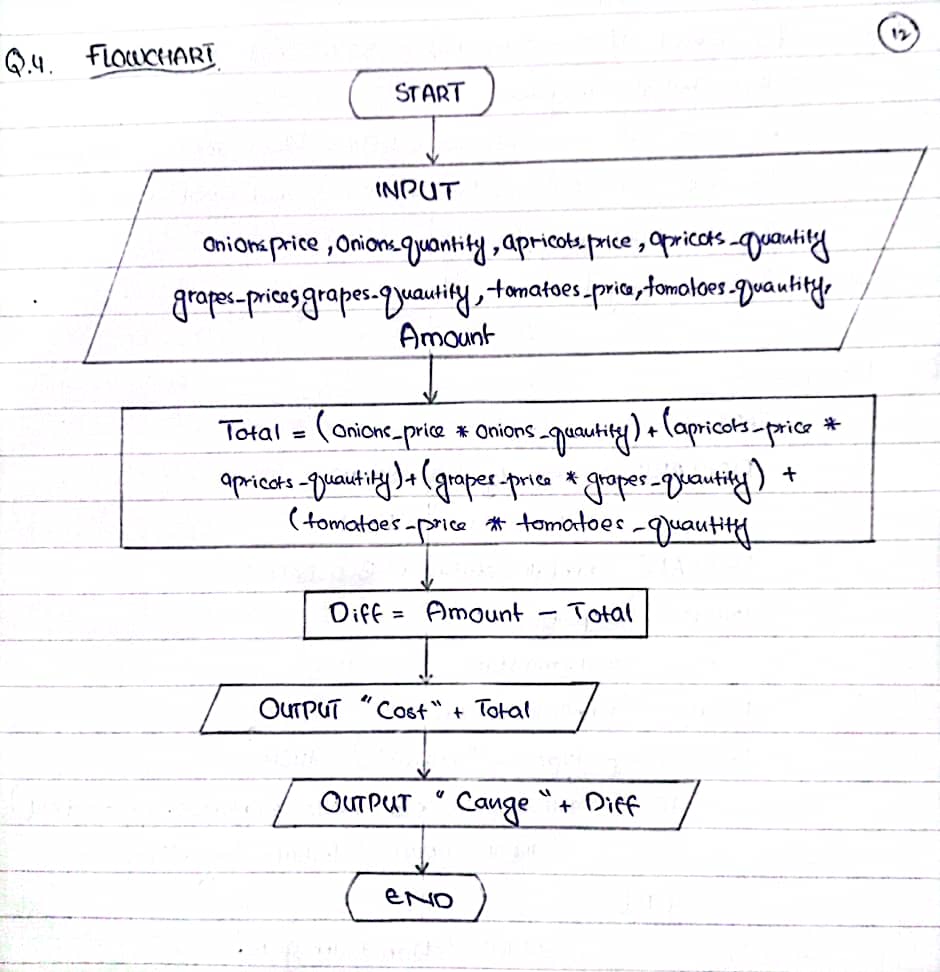 12
Q.4. FLOWCHART
START
INPUT
Onions price, Onions_quantity, apricots_price, apricots_quantity
grapes_prices, grapes_quantity, tomatoes_price, tomatoes_quantity,
Amount
Total = (onions_price * onions_quantity) + (apricots_price *
apricots_quantity) + (grapes_price * grapes_quantity) +
(tomatoes_price * tomatoes_quantity
Diff = Amount - Total
OUTPUT "Cost" + Total
OUTPUT "Cange" + Diff
END